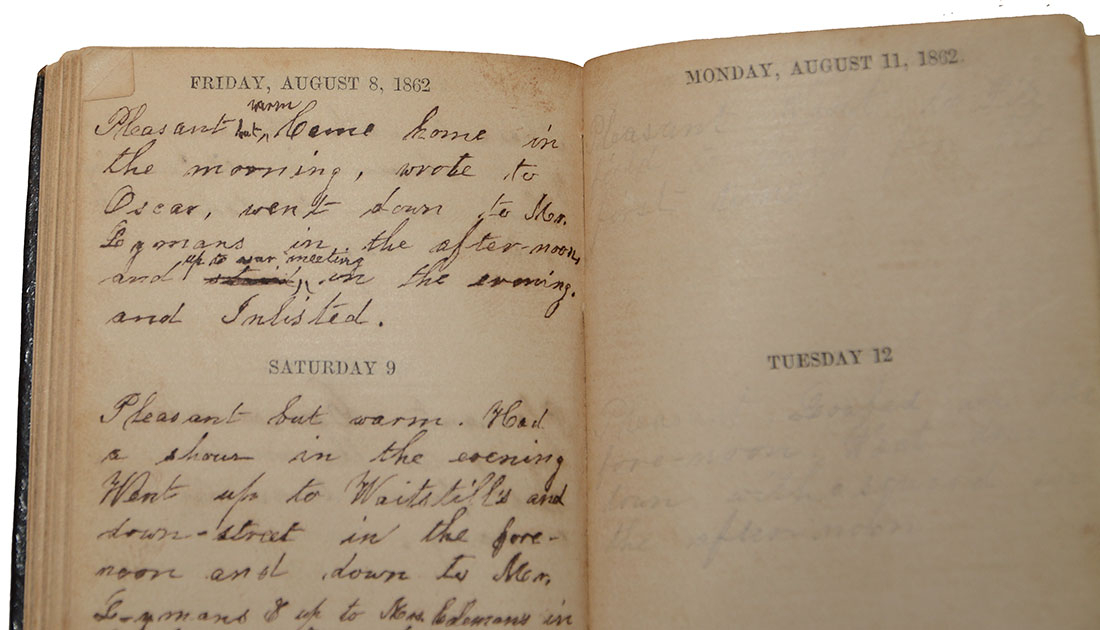 FRIDAY, AUGUST 8, 1862
Pleasant but, warm Came home in
the morning, wrote to
Oscar, went down to Mr.
Lymans in the after-noon,
and up to war meeting in the evening.
and Inlisted.
SATURDAY 9
Pleasant but warm. Had
a shour in the evening
Went up to Waitstill's and
down-street in the fore-
noon and down to Mr.
Lymans & up to Mrs. in
MONDAY, AUGUST 11, 1862.
Pleasant
TUESDAY 12
fore-noon
the afternoon